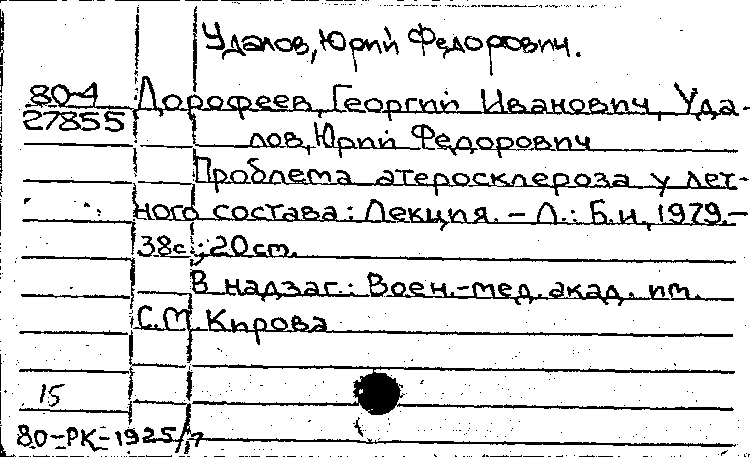 Удалов, Юрий Федорович.
80-4
27855
Дорофеев, Георгий Иванович, Уда-
лов, Юрий Федорович
Проблема атеросклероза у лет-
ного состава: Лекция. - Л.: Б.и, 1979.-
38с.; 20см.
В надзаг.: Воен.-мед. акад. им.
С.М. Кирова
15
80-РК-1925/7